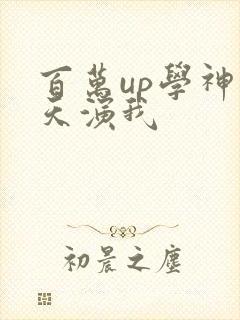 百萬up學神
天演我
初晨之塵